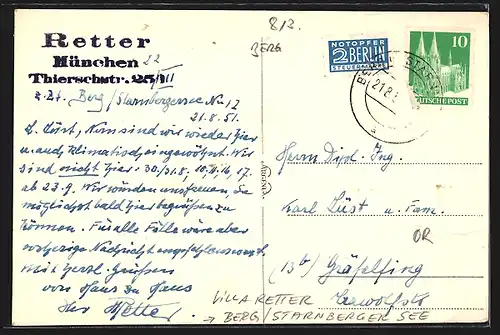 Retter
München 22
Thierschstr. 25/III
z. Zt. Berg/Starnbergersee No 12
21.8.51.
L. Lüst, Nun sind wir wieder hier
u. auch klimatisch eingewöhnt. Wir
sind nicht hier: 30./31.8., 10., 16., 17.
ab 23.9. Wir würden uns freuen, Sie
möglichst bald hier begrüßen zu
können. Für alle Fälle wäre aber
vorherige Nachricht empfehlenswert.
Mit herzl. Grüßen
von Haus zu Haus
Ihr Retter
812
BERG
NOTOPFER
2 BERLIN
STEUERMARKE
10
DEUTSCHE POST
21.8.
Herrn Dipl. Ing.
Karl Lüst u. Fam.
OR
(13b) Gräfelfing
VILLA RETTER
→ BERG/STARNBERGER SEE